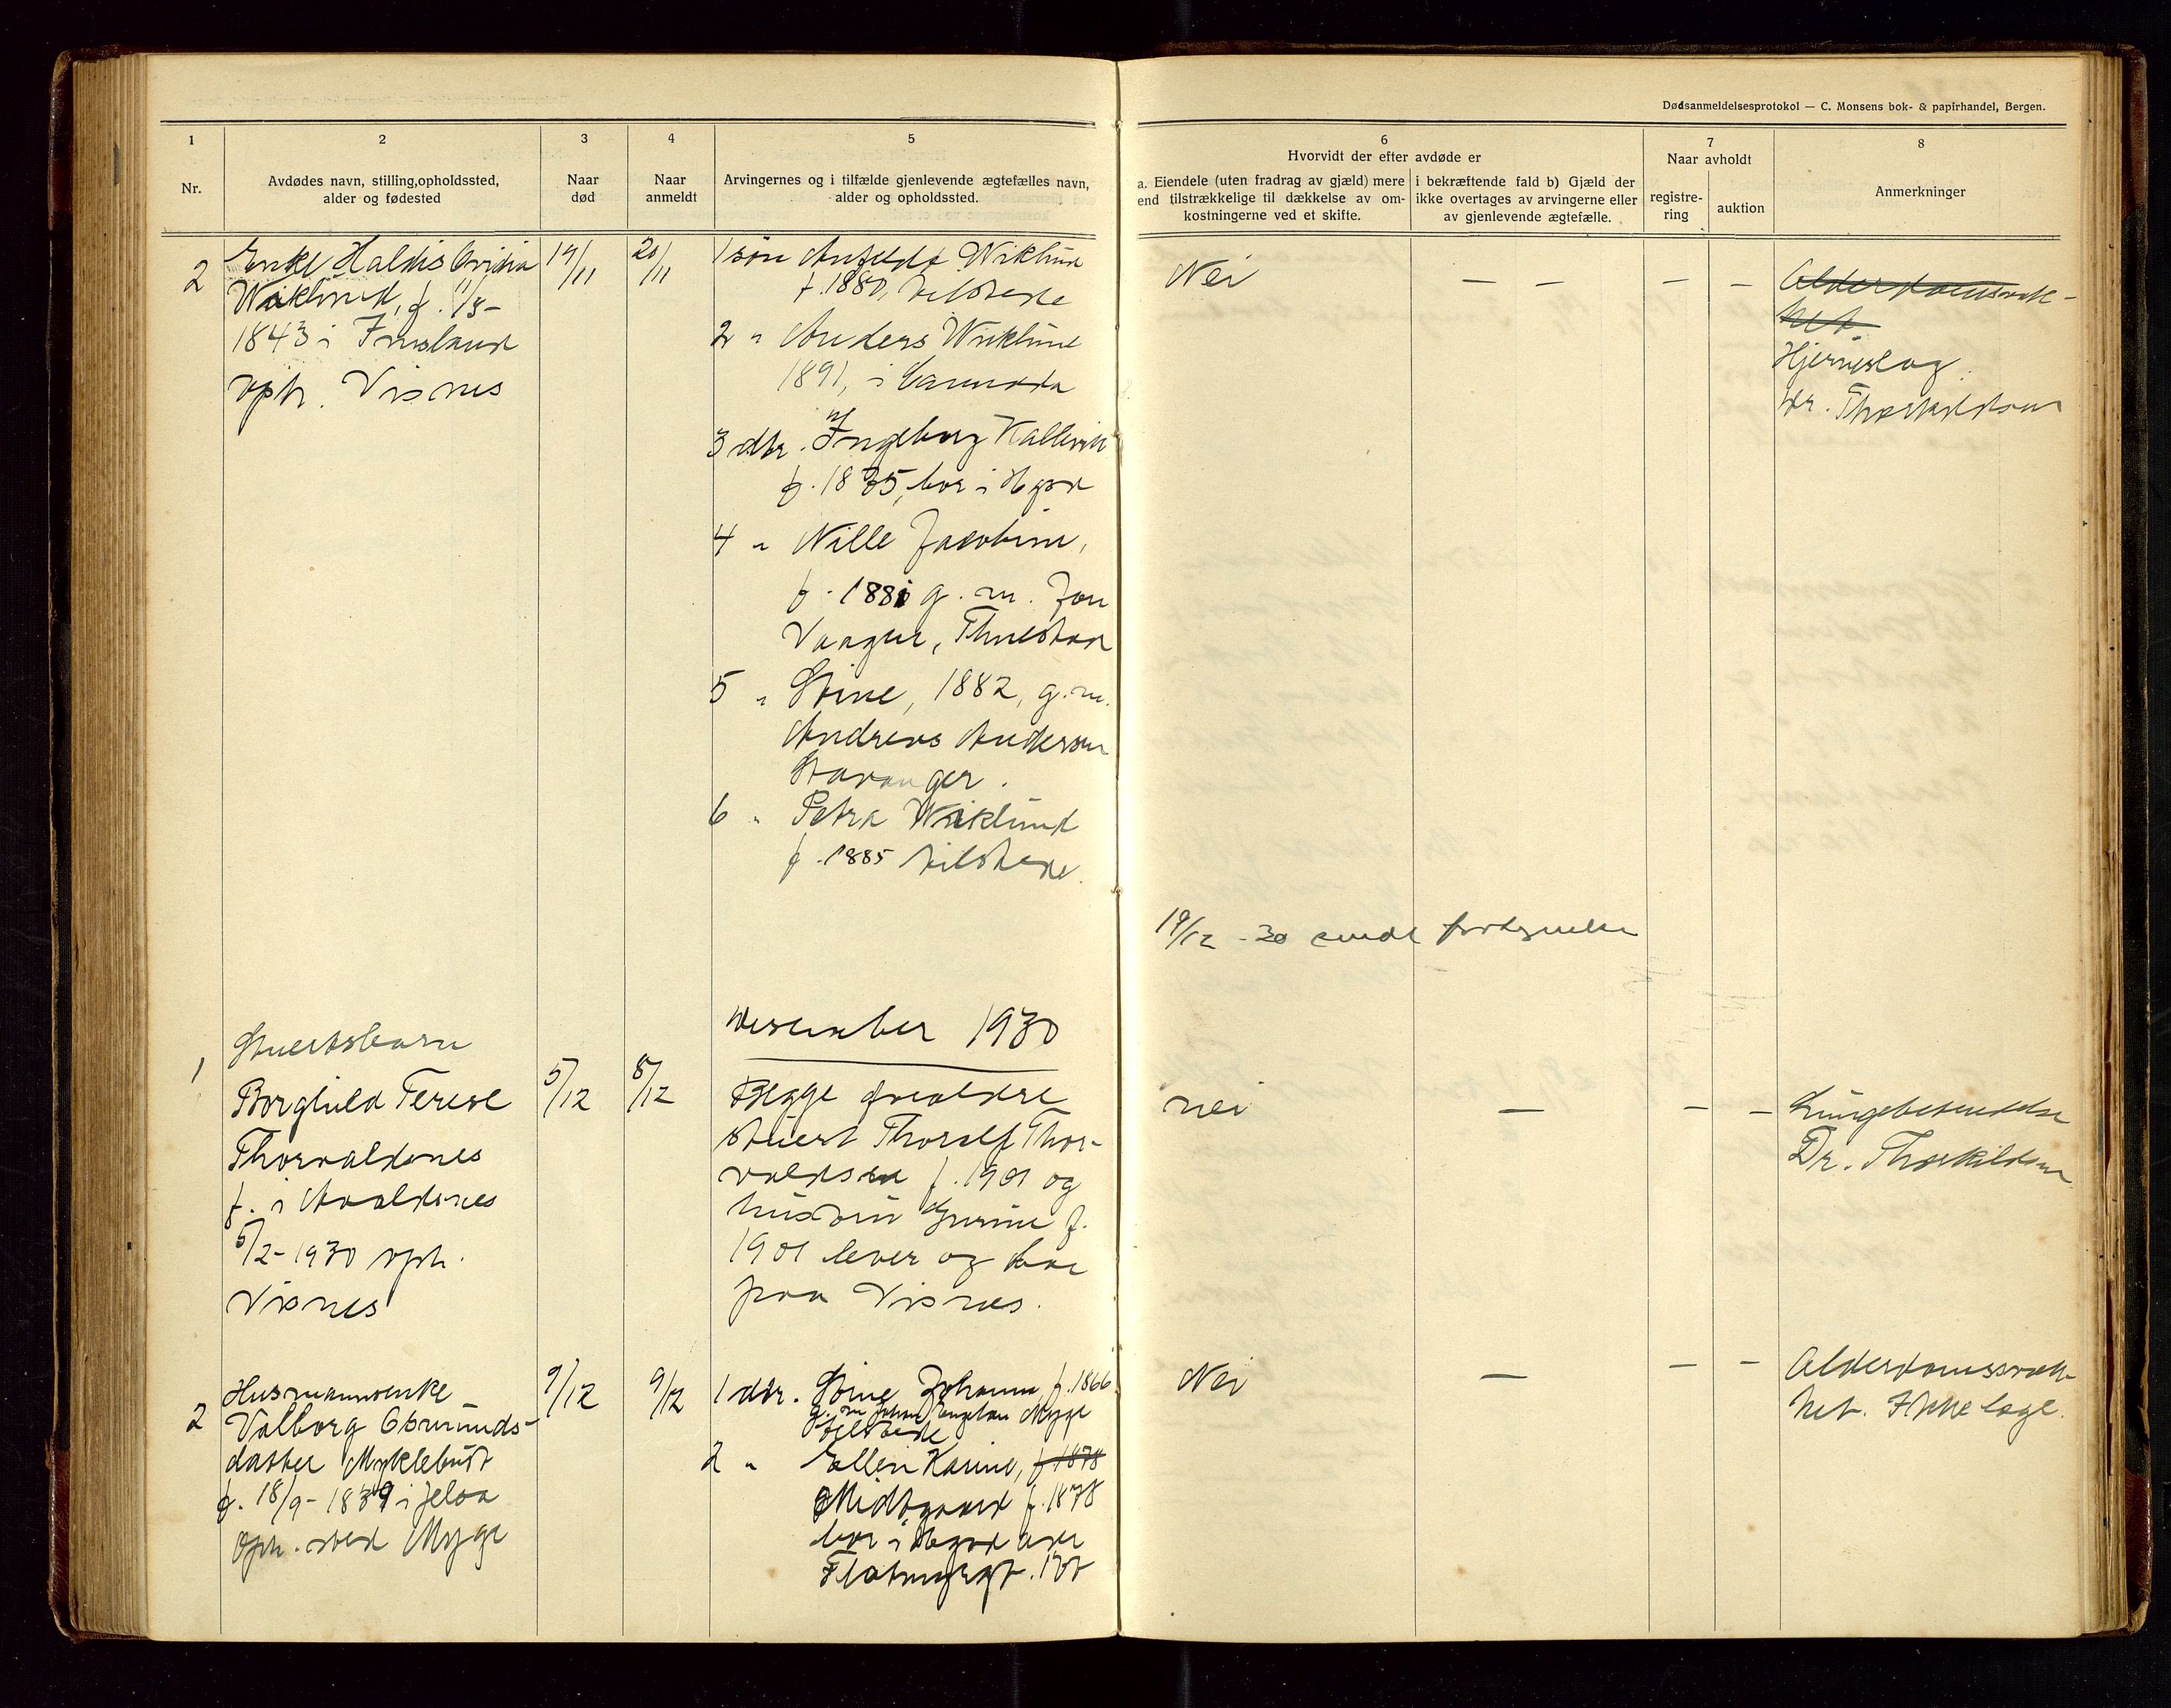 Dødsanmeldelsesprotokol — C. Monsens bok- & papirhandel, Bergen.
1
2
3
4
5
6
7
8
Nr.
Avdødes navn, stilling, opholdssted,
alder og fødested
Naar
død
Naar
anmeldt
Arvingernes og i tilfælde gjenlevende ægtefælles navn,
alder og opholdssted.
Hvorvidt der efter avdøde er
a. Eiendele (uten fradrag av gjæld) mere
end tilstrækkelige til dækkelse av om-
kostningerne ved et skifte.
i bekræftende fald b) Gjæld der
ikke overtages av arvingerne eller
av gjenlevende ægtefælle.
Naar avholdt
registre-
ring
auktion
Anmerkninger
2
Enke Haldis
Wiklund, f. 11/8-
1843 i
oph. Visnes
19/11
20/11
1 søn Anfeldt Wiklund
f. 1880, tilstede
2 " Anders Wiklund
1891, i Cannada
3 dtr. Ingeborg Kallevik
f. 1875, bor i Hgsd
4 " Nille Jacobine,
f. 1881 g. m. Jon
Vaagen,
5 " Stine, 1882, g. m.
Andreas Andersen
Stavanger.
6 " Petra Wiklund
f. 1885 tilstede.
Nei
— —
—
—
Alderdomssvak-
het
Hjerneslag.
Dr. Thorkildsen
19/12 - 30 sendt fortegnelse
Desember 1930
1
Stuertsbarn
Borghild Terese
Thorvaldsnes
f. i Avaldsnes
5/2-1930 oph.
Visnes
5/12
8/12
Begge forældre
stuert Thoralf Thor-
valdsen f. 1901 og
hustru Gurine f.
1901 lever og bor
paa Visnes.
nei
—
—
—
Lungebetendelse
Dr. Thorkildsen
2
Husmannsenke
Valborg Osmunds-
datter Myklebust
f. 18/9-1839 i Jelsa
Oph. sted Myge
9/12
9/12
1 dtr. Stine Johanne, f. 1866
g. m. Johan Mygge
tilstede
2 " Ellen Karine, f. 1878
Midtgaard f. 1878
bor i Hgsd adr
Nei
—
—
—
Alderdomssvak-
het. Ikke læge.